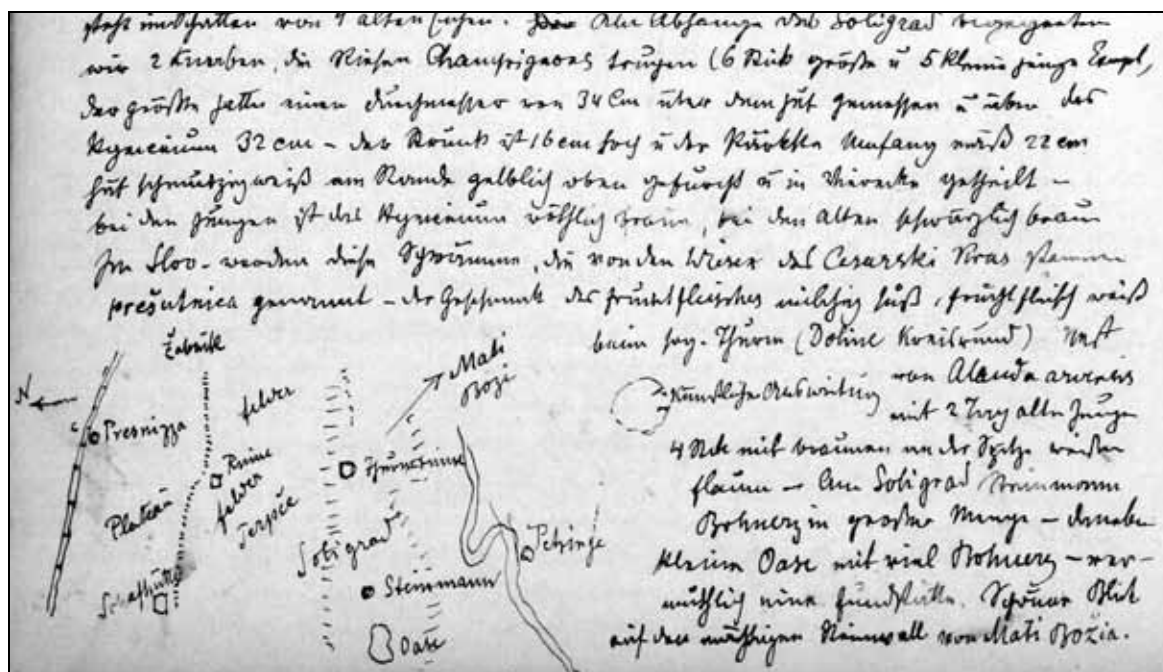 steht im Schatten von 4 alten Eichen. Am Abhange des Soligrad begegneten
wir 2 Knaben, die Riesen Champignons trugen (6 Stück große u 5 kleine junge Exempl,
der größte hatte einen Durchmesser von 34 Cm über dem Hut gemessen u über das
Hymenium 32 cm – der Strunk ist 16 cm hoch u der stärkste Umfang maß 22 cm
Hut schmutzigweiß am Rande gelblich oben gefurcht u in Vierecke getheilt –
bei den Jungen ist das Hymenium röthlich braun, bei den alten schwärzlich braun
Im Slov. werden diese Schwämme, die von den Wiesen des Cesarski Kras stammen
prešutnica genannt – der Geschmack des Fruchtfleisches milchig süß, Fruchtfleisch weiß
beim sog. Thurm (Doline Kreisrund) Nest
Künstliche Ausweitung
von Alauda arvensis
mit 2 Tag alten Jungen
4 Stck mit braunen an der Spitze weißen
Flaum – Am Soligrad Steinmann
Bohnerz in großer Menge – daneben
kleine Oase mit viel Bohnerz – ver-
muthlich eine Fundstätte. Schöner Blick
auf den mächtigen Steinwall von Mati Božia.
N
Presnizza
Plateau
Schafhütte
Felder
Ruine
Felder
Terpče
Soligrad
Thurmruine
Steinmann
Oase
Mati
Boži
Petrinje